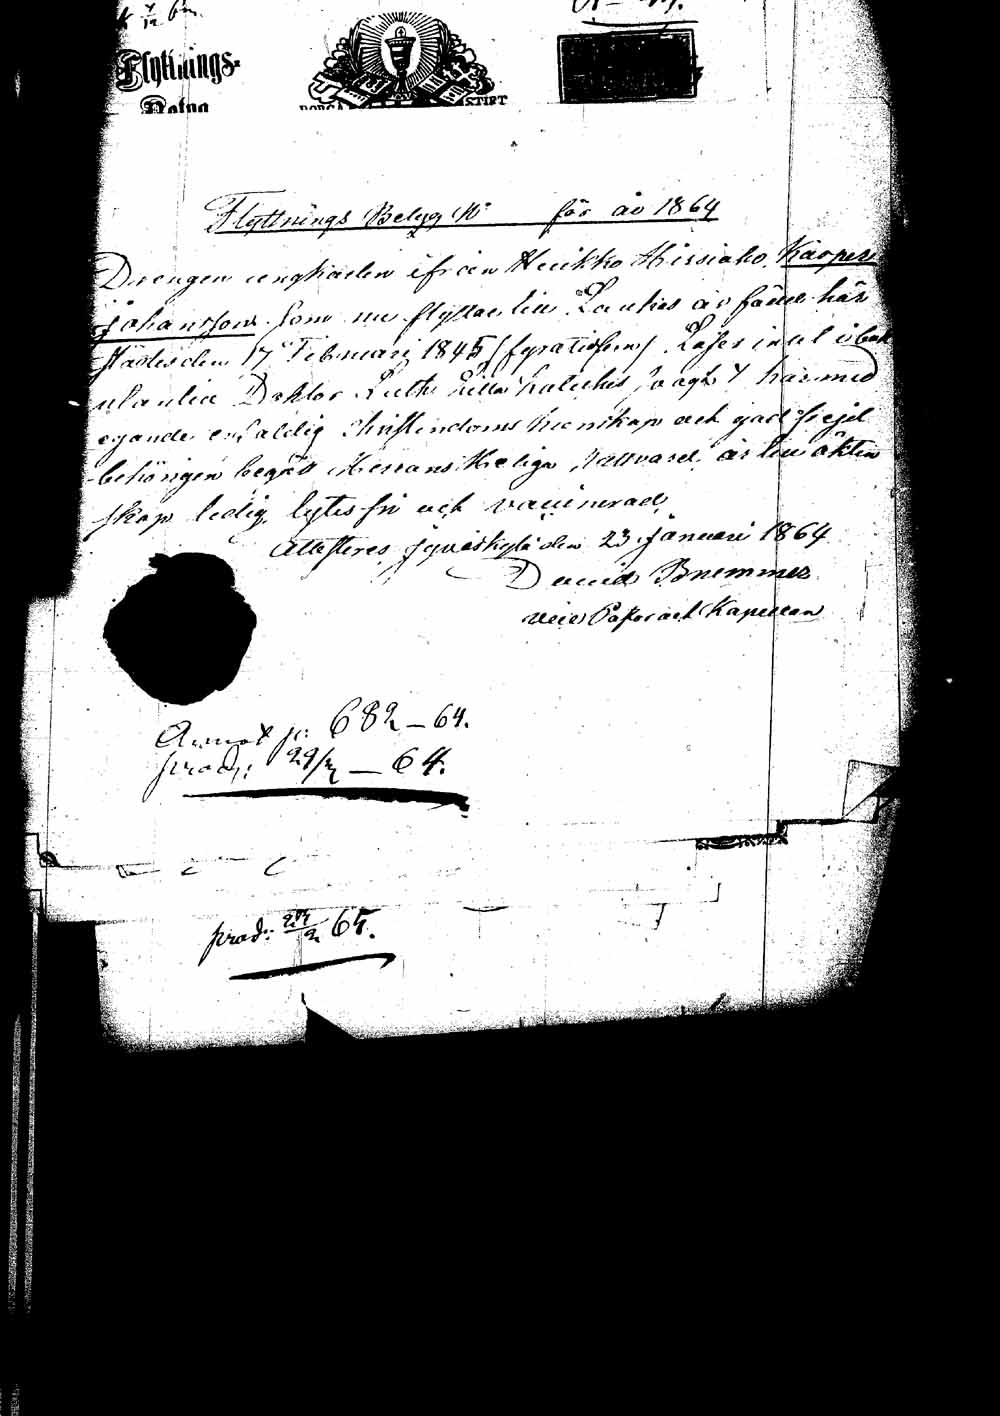 Flyttnings-
BORGÅ STIFT
Flyttnings Belyg No för år 1864
Drengen ungkarlen ifrån Heikko Hirsiaho, Kasper
Johansson som nu flyttar till Laukas är född här
städes den 17 Februari 1845 (fyratifem) Läser innel i bok
utantill Doktor Luth: Lilla kateches
egande enfaldig Christindoms kunskap och god frejd
behörigen begått Herrans Heliga Nattvard, är till äkten
skap ledig, lytesfri och vaccinerad,
Attesteras, Jyväskylä den 23 Januari 1864
David Bremmer
vice Pastor och Kapellan
Annot p: 682-64.
prod: 29/2 - 64.
prod: 65.